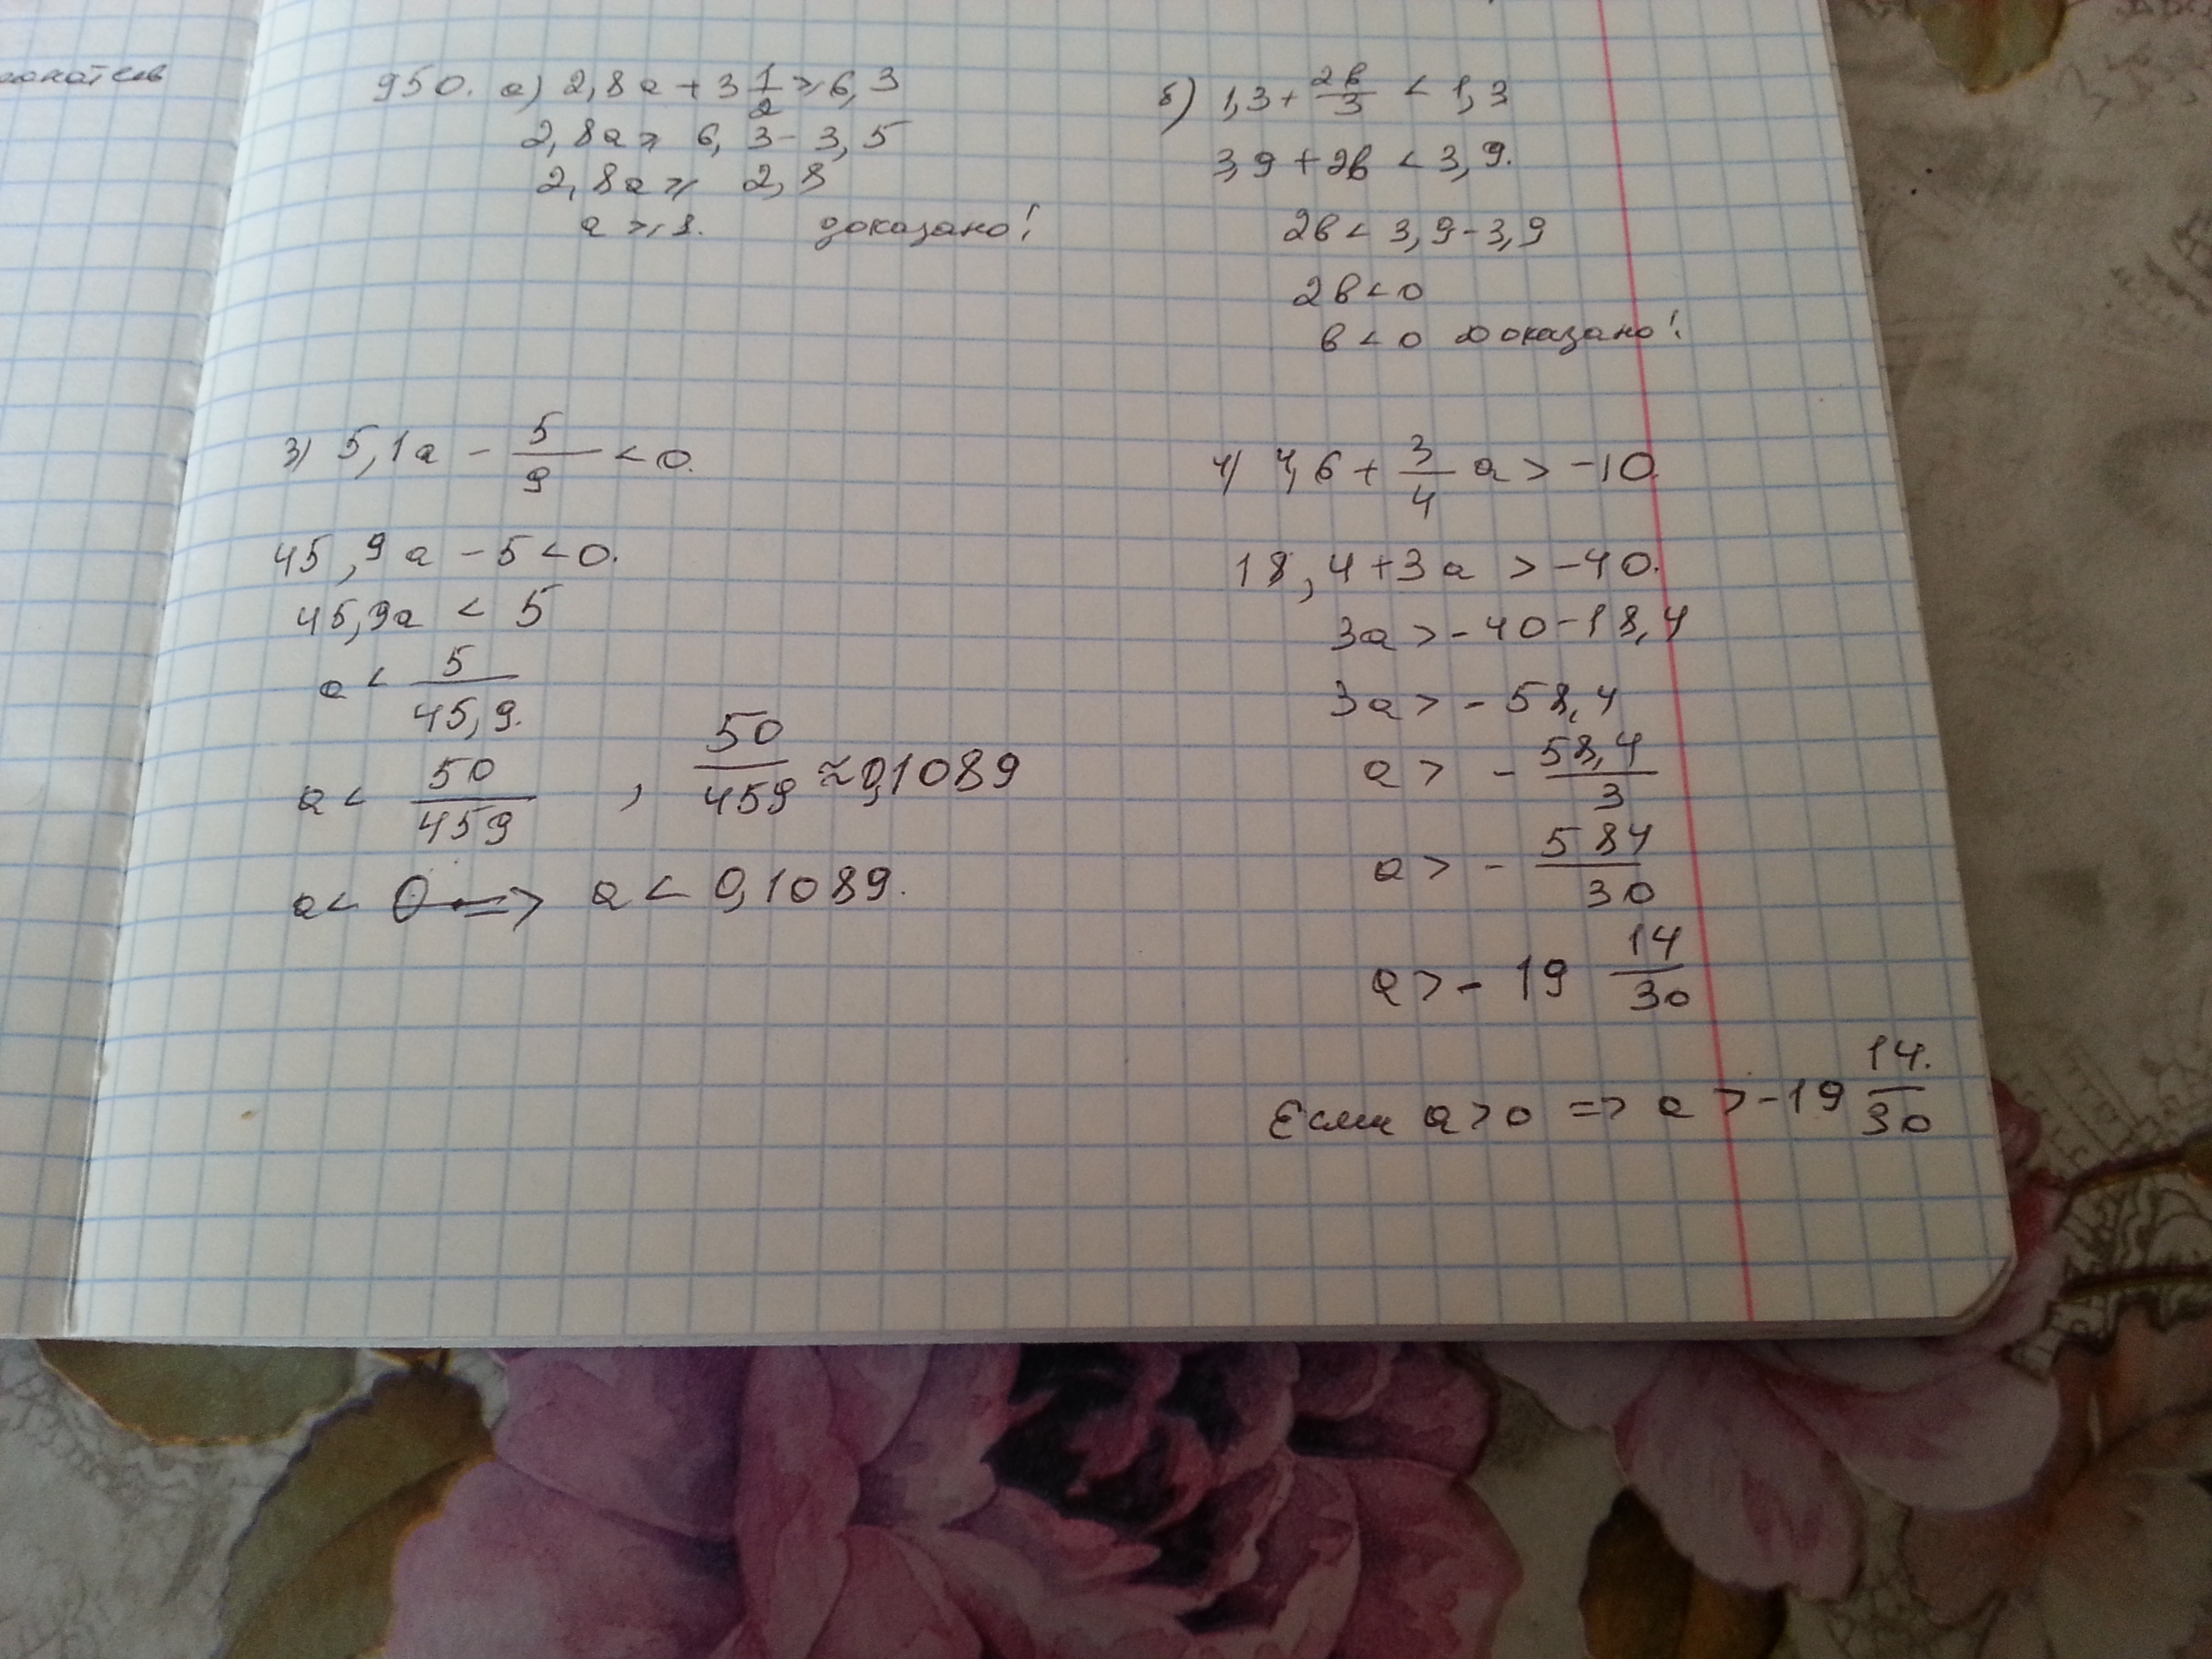 950. а) 2,8a + 3 1/2 ⩾ 6,3
2,8a ⩾ 6,3 - 3,5
2,8a ⩾ 2,8
a ⩾ 1. доказано!
б) 1,3 + 2в/3 < 1,3
3,9 + 2в < 3,9.
2в < 3,9 - 3,9
2в < 0
в < 0 доказано!
3) 5,1a - 5/9 < 0.
45,9a - 5 < 0.
45,9a < 5
a < 5/45,9.
a < 50/459 , 50/459 ≈ 0,1089
a < 0 => a < 0,1089.
4) 4,6 + 3/4 a > -10.
18,4 + 3a > -40.
3a > -40 - 18,4
3a > - 58,4
a > - 58,4/3
a > - 584/30
a > - 19 14/30
Если a > 0 => a > -19 14/30